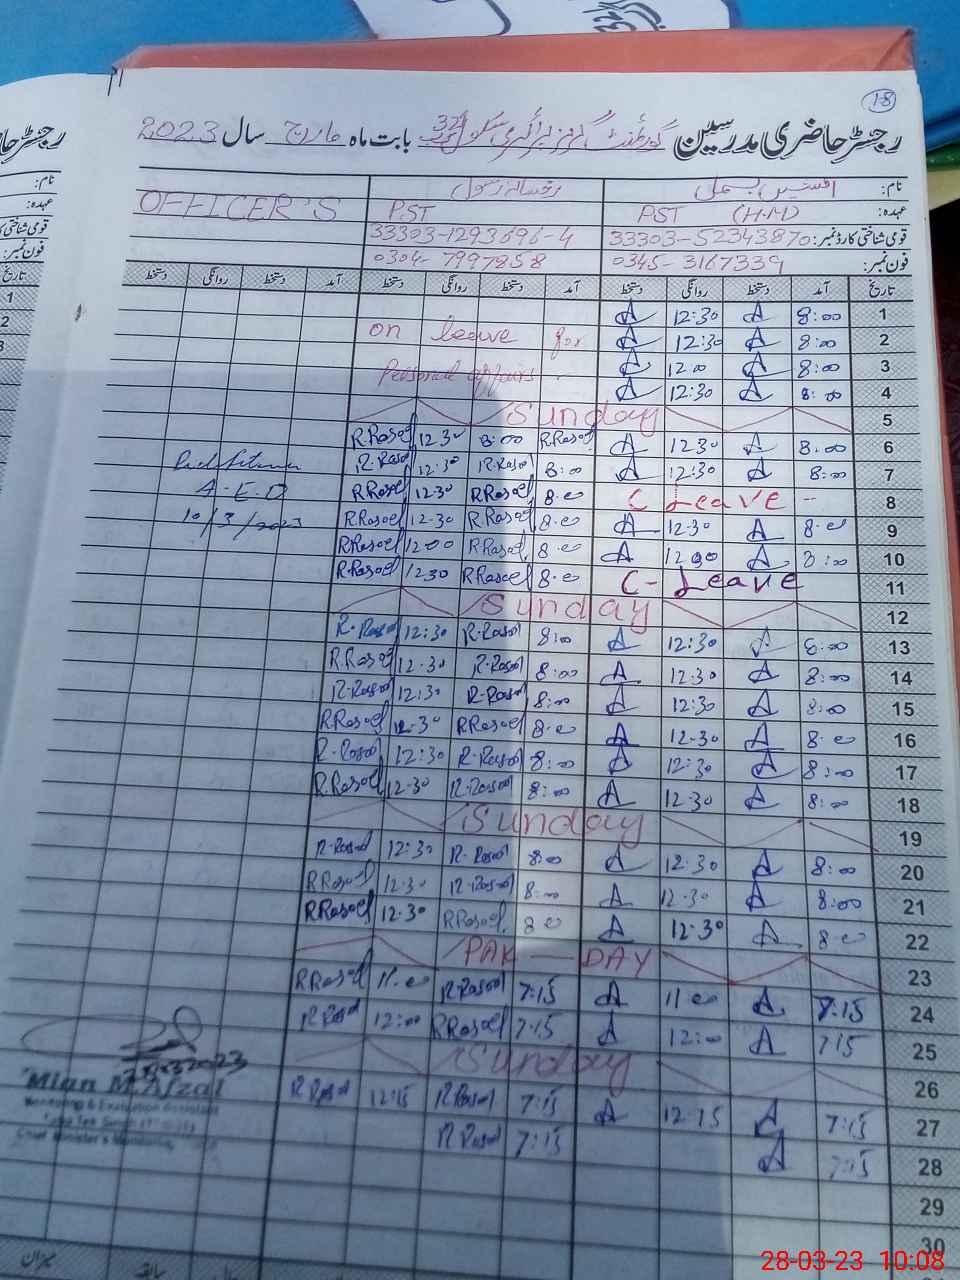 18
رجسٹر حاضری مدرسین گورنمنٹ گرلز پرائمری سکول بابت ماہ مارچ سال 2023
نام:
عہدہ: PST (H.M) PST OFFICER'S
قومی شناختی کارڈ نمبر: 33303-52343870 33303-1293696-4
فون نمبر: 0345-3167339 0304-7997858
تاریخ آمد دستخط روانگی دستخط آمد دستخط روانگی دستخط آمد دستخط روانگی دستخط
1 8:00 A 12:30 A
2 8:00 A 12:30 A on leave for
3 8:00 A 12 00 A Personal affairs
4 8:00 A 12:30 A
5 Sunday
6 8:00 A 12 30 A R.Rasool 8:00 12 30 R.Rasool
7 8:00 A 12:30 A 8:00 R.Rasool 12:30 R.Rasool
8 C Leave 8:00 R.Rasool 12.30 R.Rasool A.E.O
9 8:00 A 12.30 A 8:00 R.Rasool 12.30 R.Rasool 10/3/2023
10 8:00 A 12 00 A 8:00 R.Rasool 12 00 R.Rasool
11 C-Leave 8:00 R.Rasool 12 30 R.Rasool
12 Sunday
13 8:00 A 12:30 A 8:00 R.Rasool 12:30 R.Rasool
14 8:00 A 12.30 A 8:00 R.Rasool 12.30 R.Rasool
15 8:00 A 12:30 A 8:00 R.Rasool 12:30 R.Rasool
16 8:00 A 12.30 A 8:00 R.Rasool 12.30 R.Rasool
17 8:00 A 12:30 A 8:00 R.Rasool 12:30 R.Rasool
18 8:00 A 12.30 A 8:00 R.Rasool 12.30 R.Rasool
19 Sunday
20 8:00 A 12.30 A 8:00 R.Rasool 12:30 R.Rasool
21 8:00 A 12.30 A 8:00 R.Rasool 12.30 R.Rasool
22 8:00 A 12.30 A 8:00 R.Rasool 12.30 R.Rasool
23 PAK-DAY
24 7:15 A 11:00 A 7:15 R.Rasool 11:00 R.Rasool
25 7:15 A 12:00 A 7:15 R.Rasool 12:00 R.Rasool
26 Sunday
27 7:15 A 12.15 A 7:15 R.Rasool 12:15 R.Rasool
28 7:15 A 7:15 R.Rasool
29
30
Mian M.Afzal
Monitoring & Evaluation Assistant
Chief Minister's Monitoring
میزان
سابقہ
28-03-23 10:08